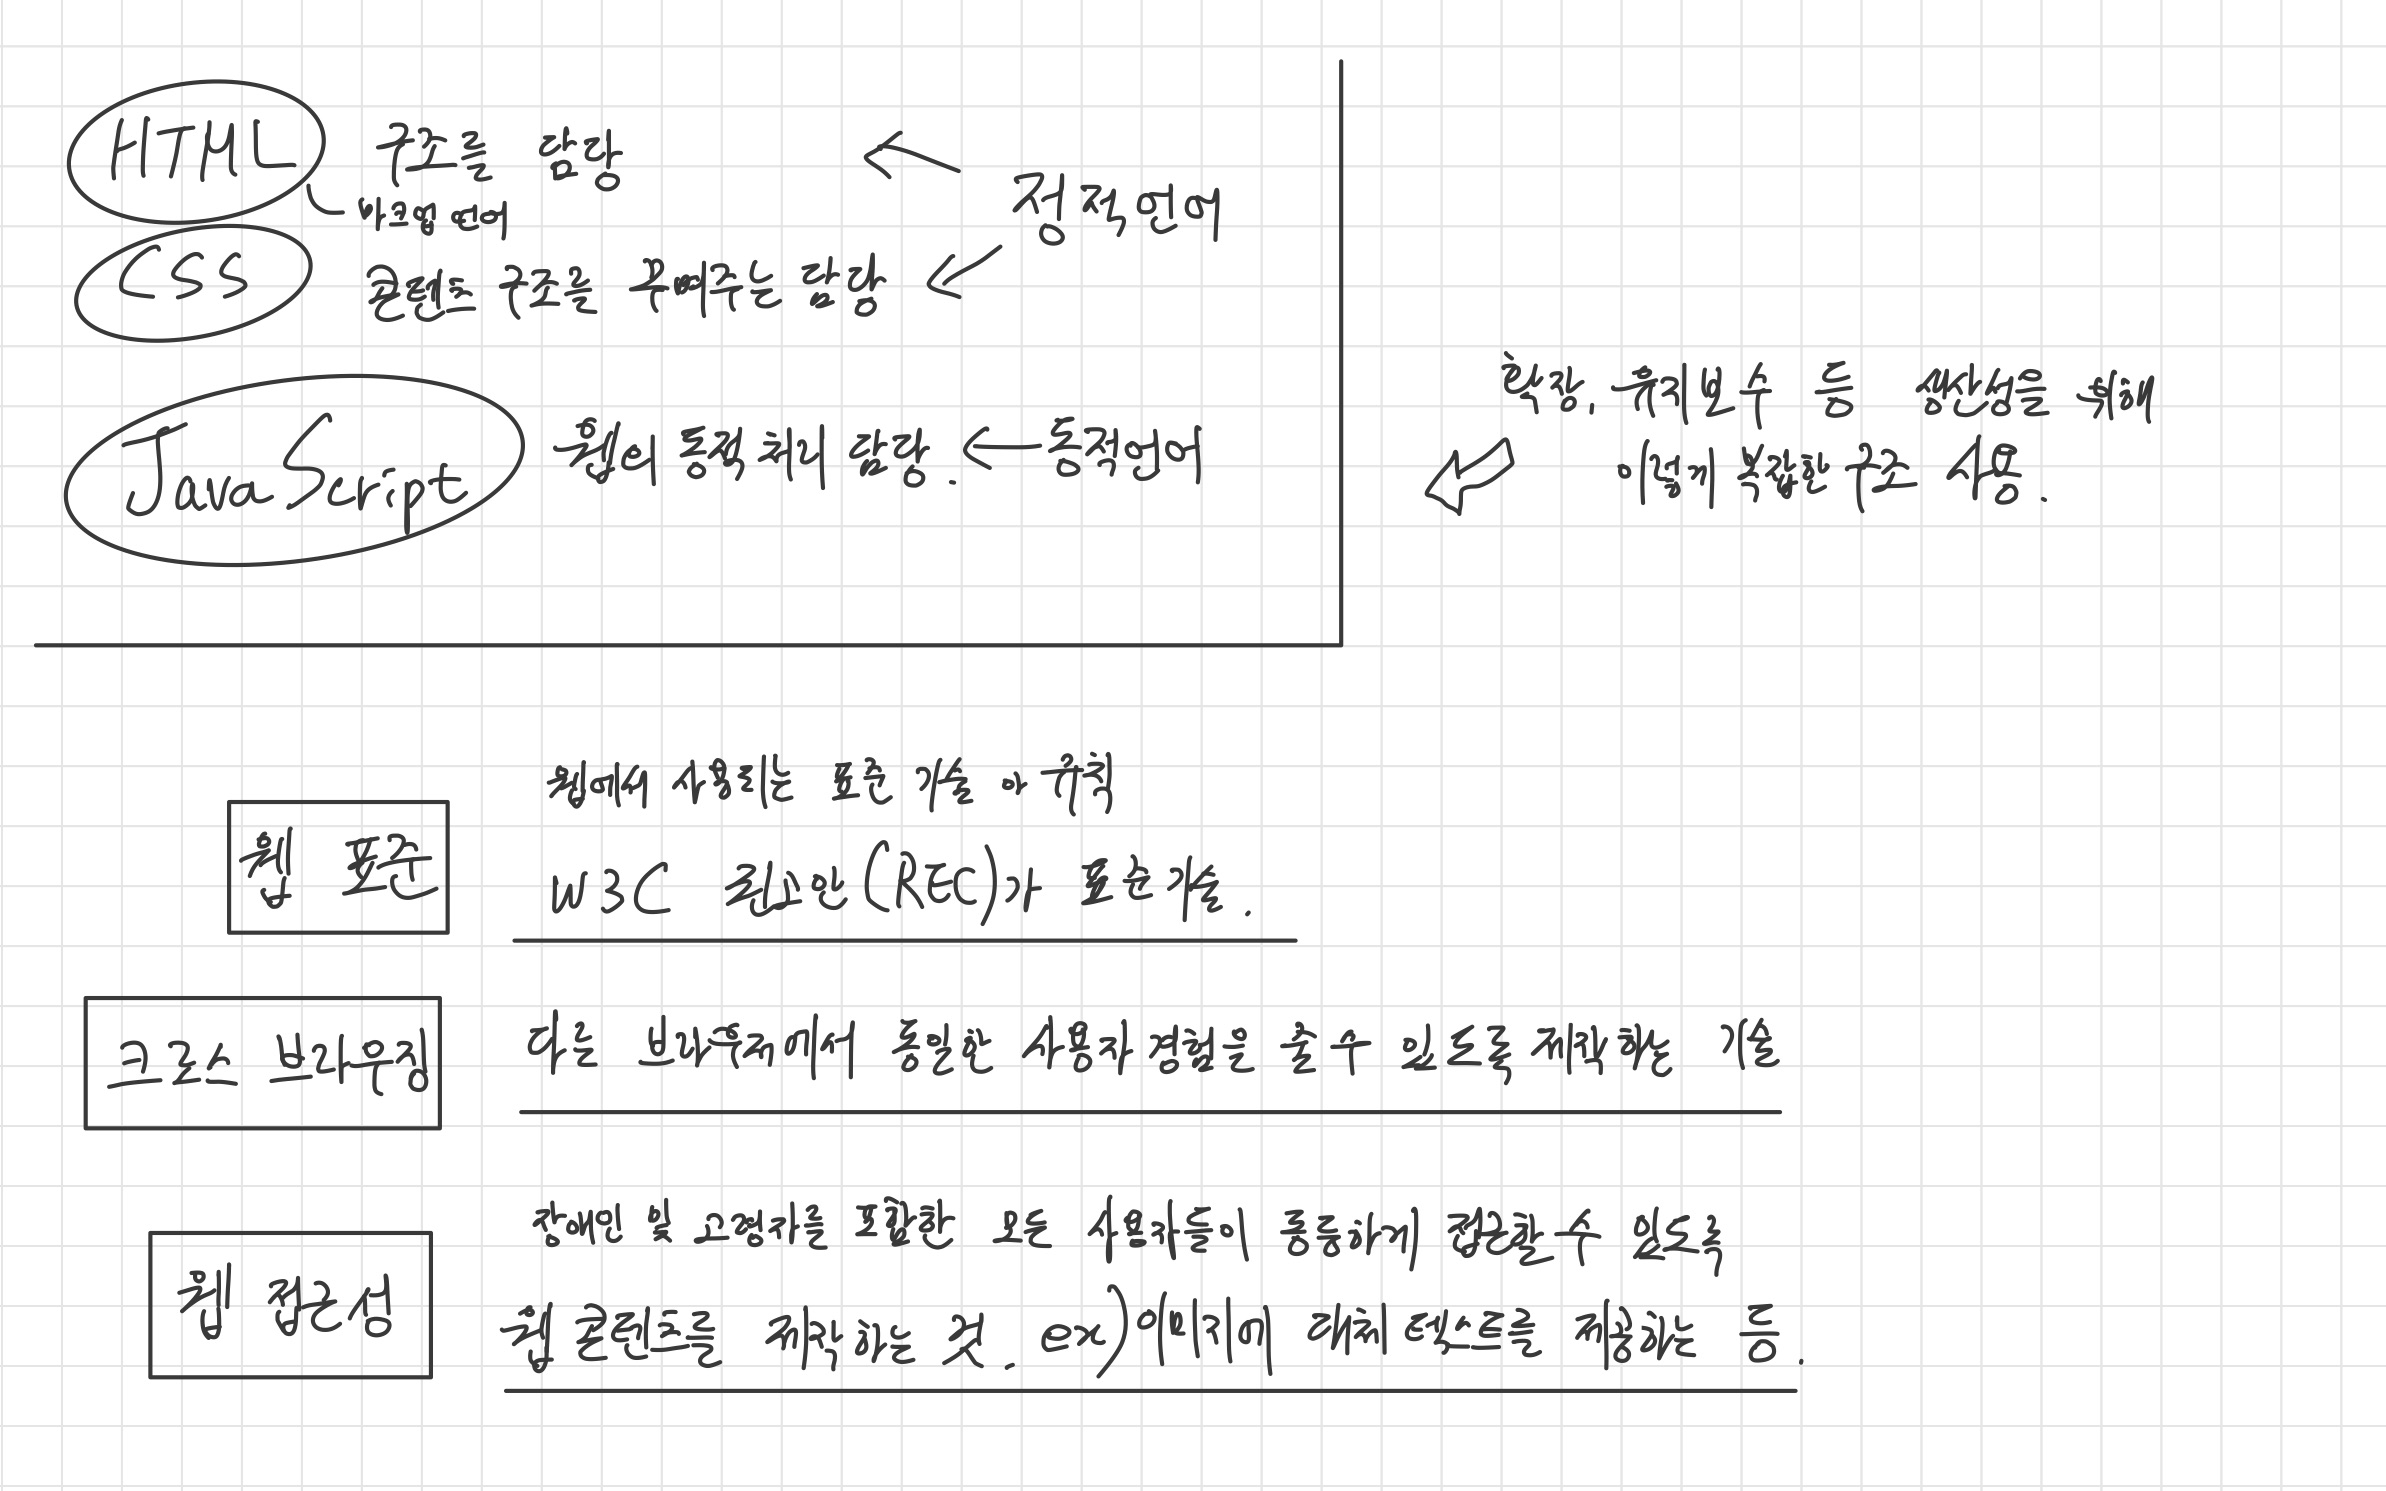 HTML 구조를 담당
마크업 언어
정적언어
CSS 콘텐츠 구조을 꾸며주는 담당
JavaScript 웹의 동적 처리 담당. 동적언어
확장, 유지보수 등 생산성을 위해
이렇게 복잡한 구조 사용.
웹에서 사용되는 표준 기술 이 규칙
웹 표준
W3C 권고안(REC)가 표준기술.
크로스 브라우징 다른 브라우저에서 동일한 사용자 경험을 줄 수 있도록 제작하는 기술
장애인 및 고령자를 포함한 모든 사용자들이 동등하게 접근할 수 있도록
웹 접근성
웹 콘텐트를 제작하는 것. ex) 이미지에 대체 텍스트를 제공하는 등.